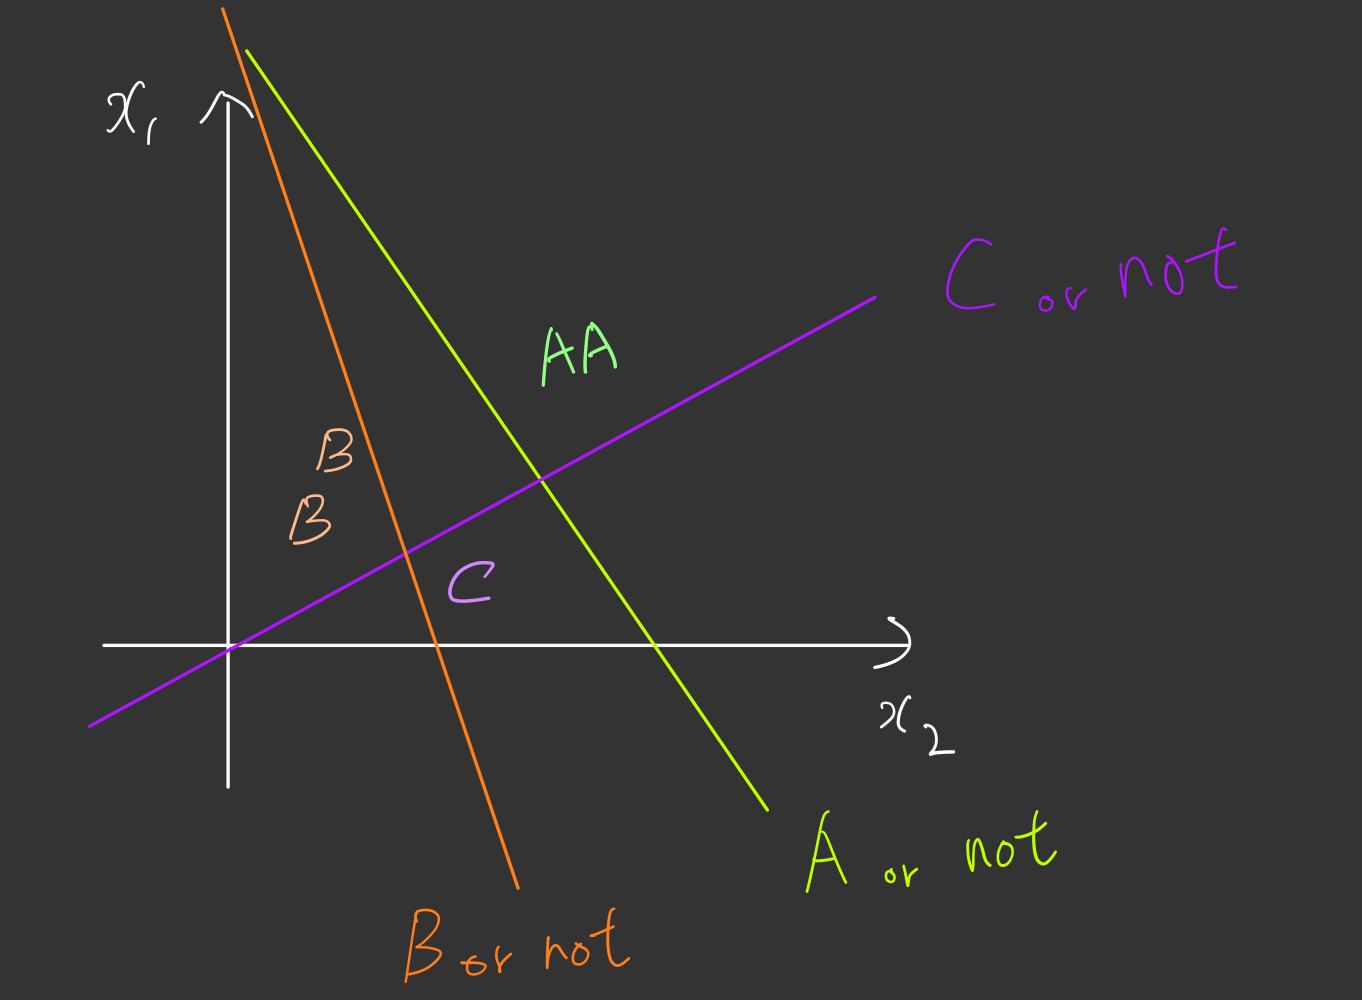 x₁
C or not
AA
B
B
C
x₂
A or not
B or not